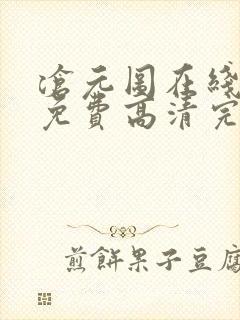 滄元圖在綫
免費高清完
煎餅果子豆腐